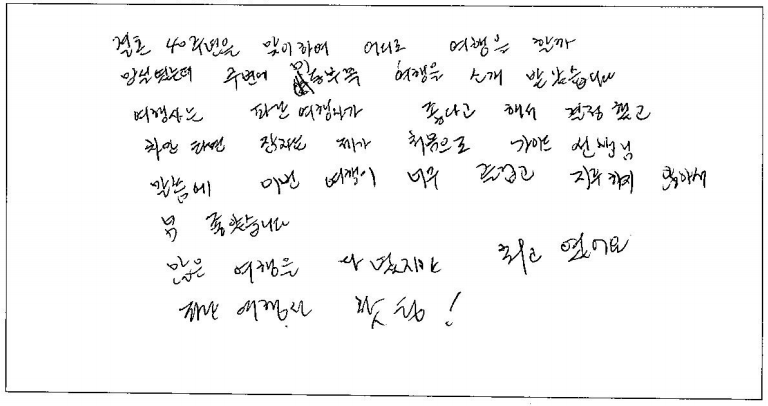 결혼 40주년을 맞이하여 어디로 여행을 할까
망설였는데 주변에 미동부쪽 여행을 소개 받았습니다
여행사는 파란 여행사가 좋다고 해서 결정 했고
차만 타면 잠자는 제가 처음으로 가이드 선생님
말씀에 이번 여행이 너무 즐겁고 지루하지 않아서
넘 좋았습니다
많은 여행은 다녔지만 최고 였어요
파란 여행사 홧팅!